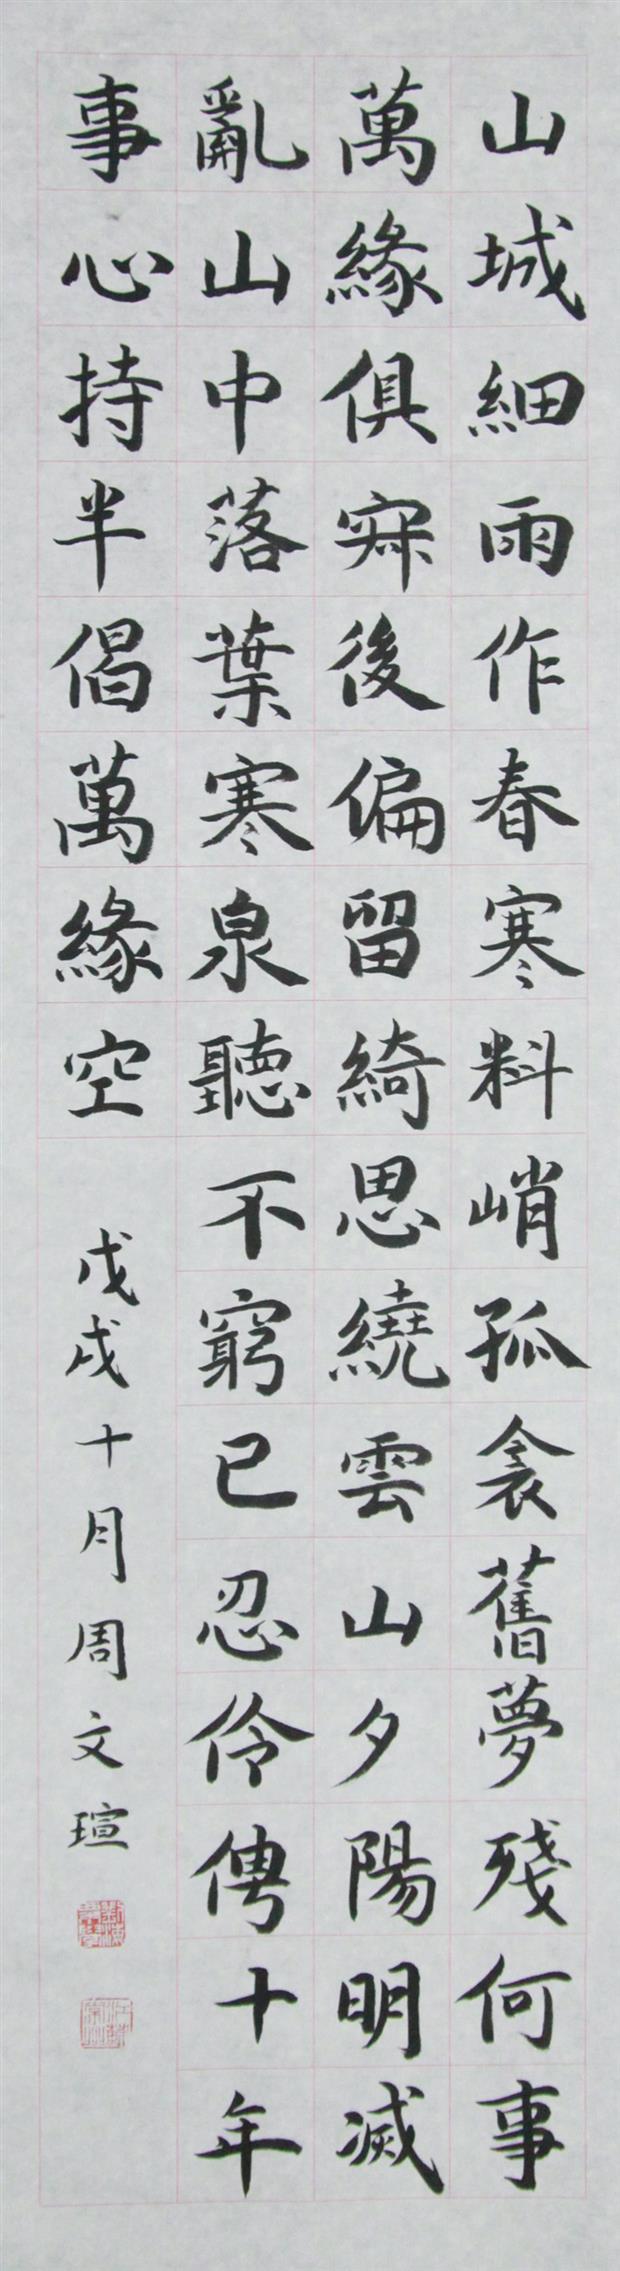 山城細雨作春寒料峭孤衾舊夢殘何事
萬緣俱寂後偏留綺思繞雲山夕陽明滅
亂山中落葉寒泉聽不窮已忍伶俜十年
事心持半偈萬緣空
戊戌十月周文瑄